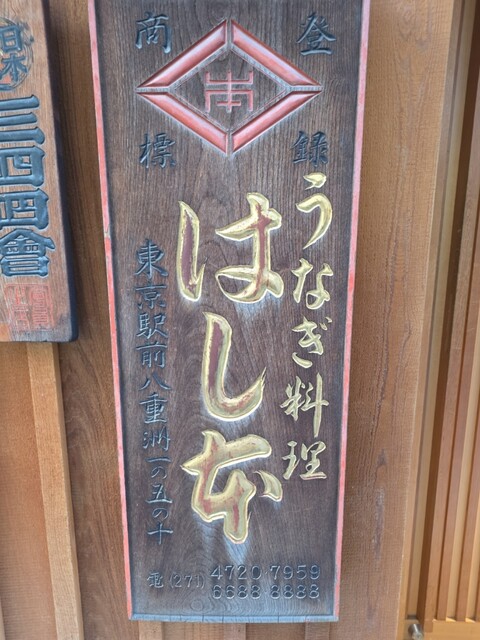 登録
商標
うなぎ料理
はし本
東京駅前八重洲一の五の十
電(271) 4720 7959
6688 8888
日本
三四四會